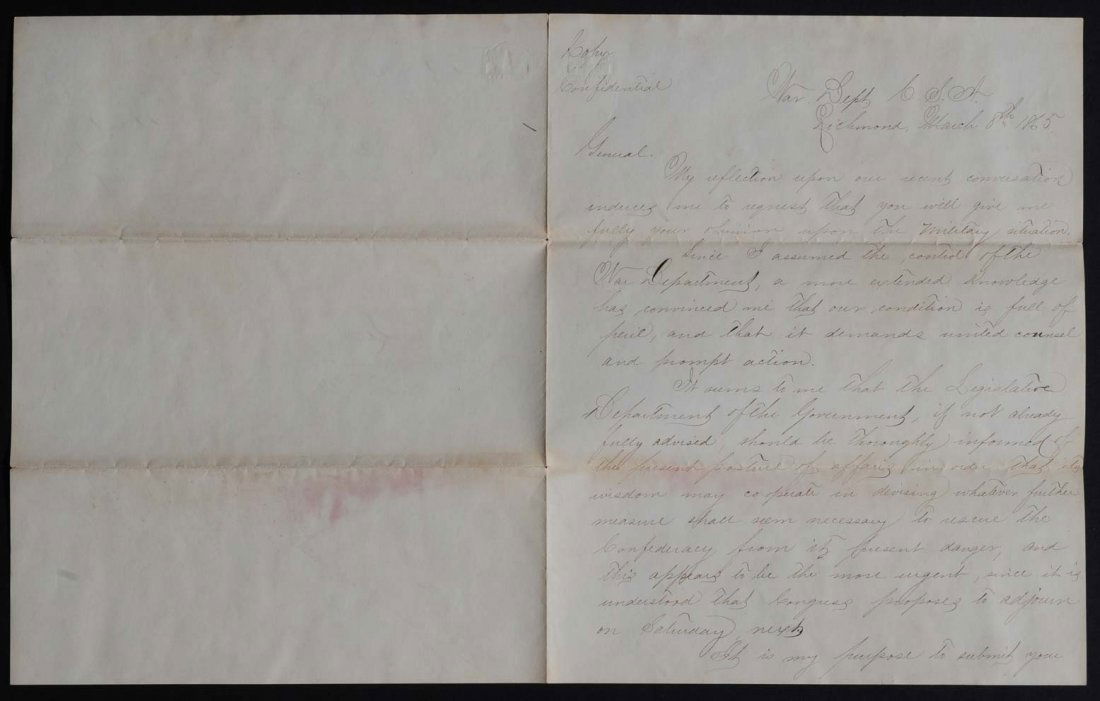 Copy
Confidential
War Dept, C. S. A.
Richmond, March 8th 1865
General.
My reflection upon our recent conversation
induces me to request that you will give me
fully your opinion upon the Military situation.
Since I assumed the control of the
War Department, a more extended knowledge
has convinced me that our condition is full of
peril, and that it demands united counsel
and prompt action.
It seems to me that the Legislative
Department of the Government, if not already
fully advised, should be thoroughly informed of
the present posture of affairs in order that its
wisdom may cooperate in devising whatever further
measure shall seem necessary to rescue the
Confederacy from its present danger, and
this appears to be the more urgent, since it is
understood that Congress proposes to adjourn
on Saturday next
It is my purpose to submit your